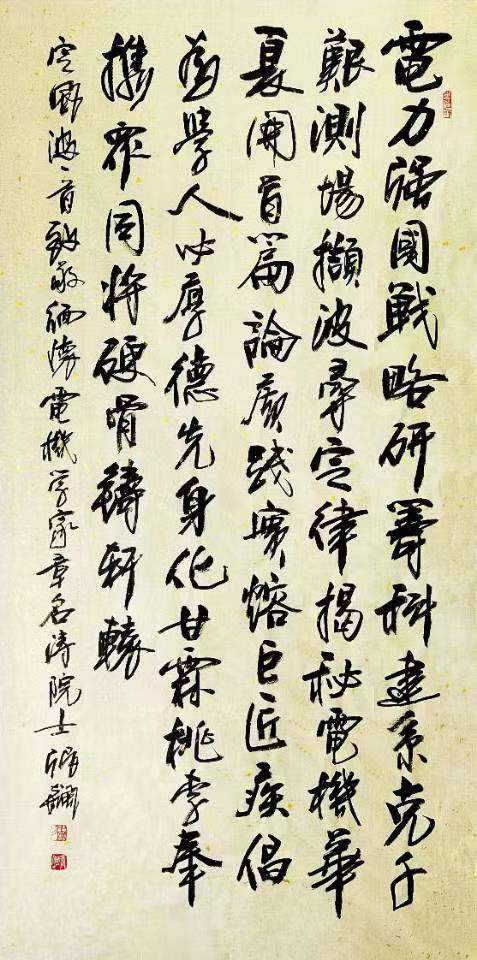 電力强國戰略研籌科建系克千
艱測場擷波尋定律揭秘電機華
夏開首篇論廣踐實熔巨匠疾倡
為學人必厚德先身化甘霖桃李奉
携眾同將硬骨鑄軒轅
定風波一首致敬緬懷電機学家章名涛院士